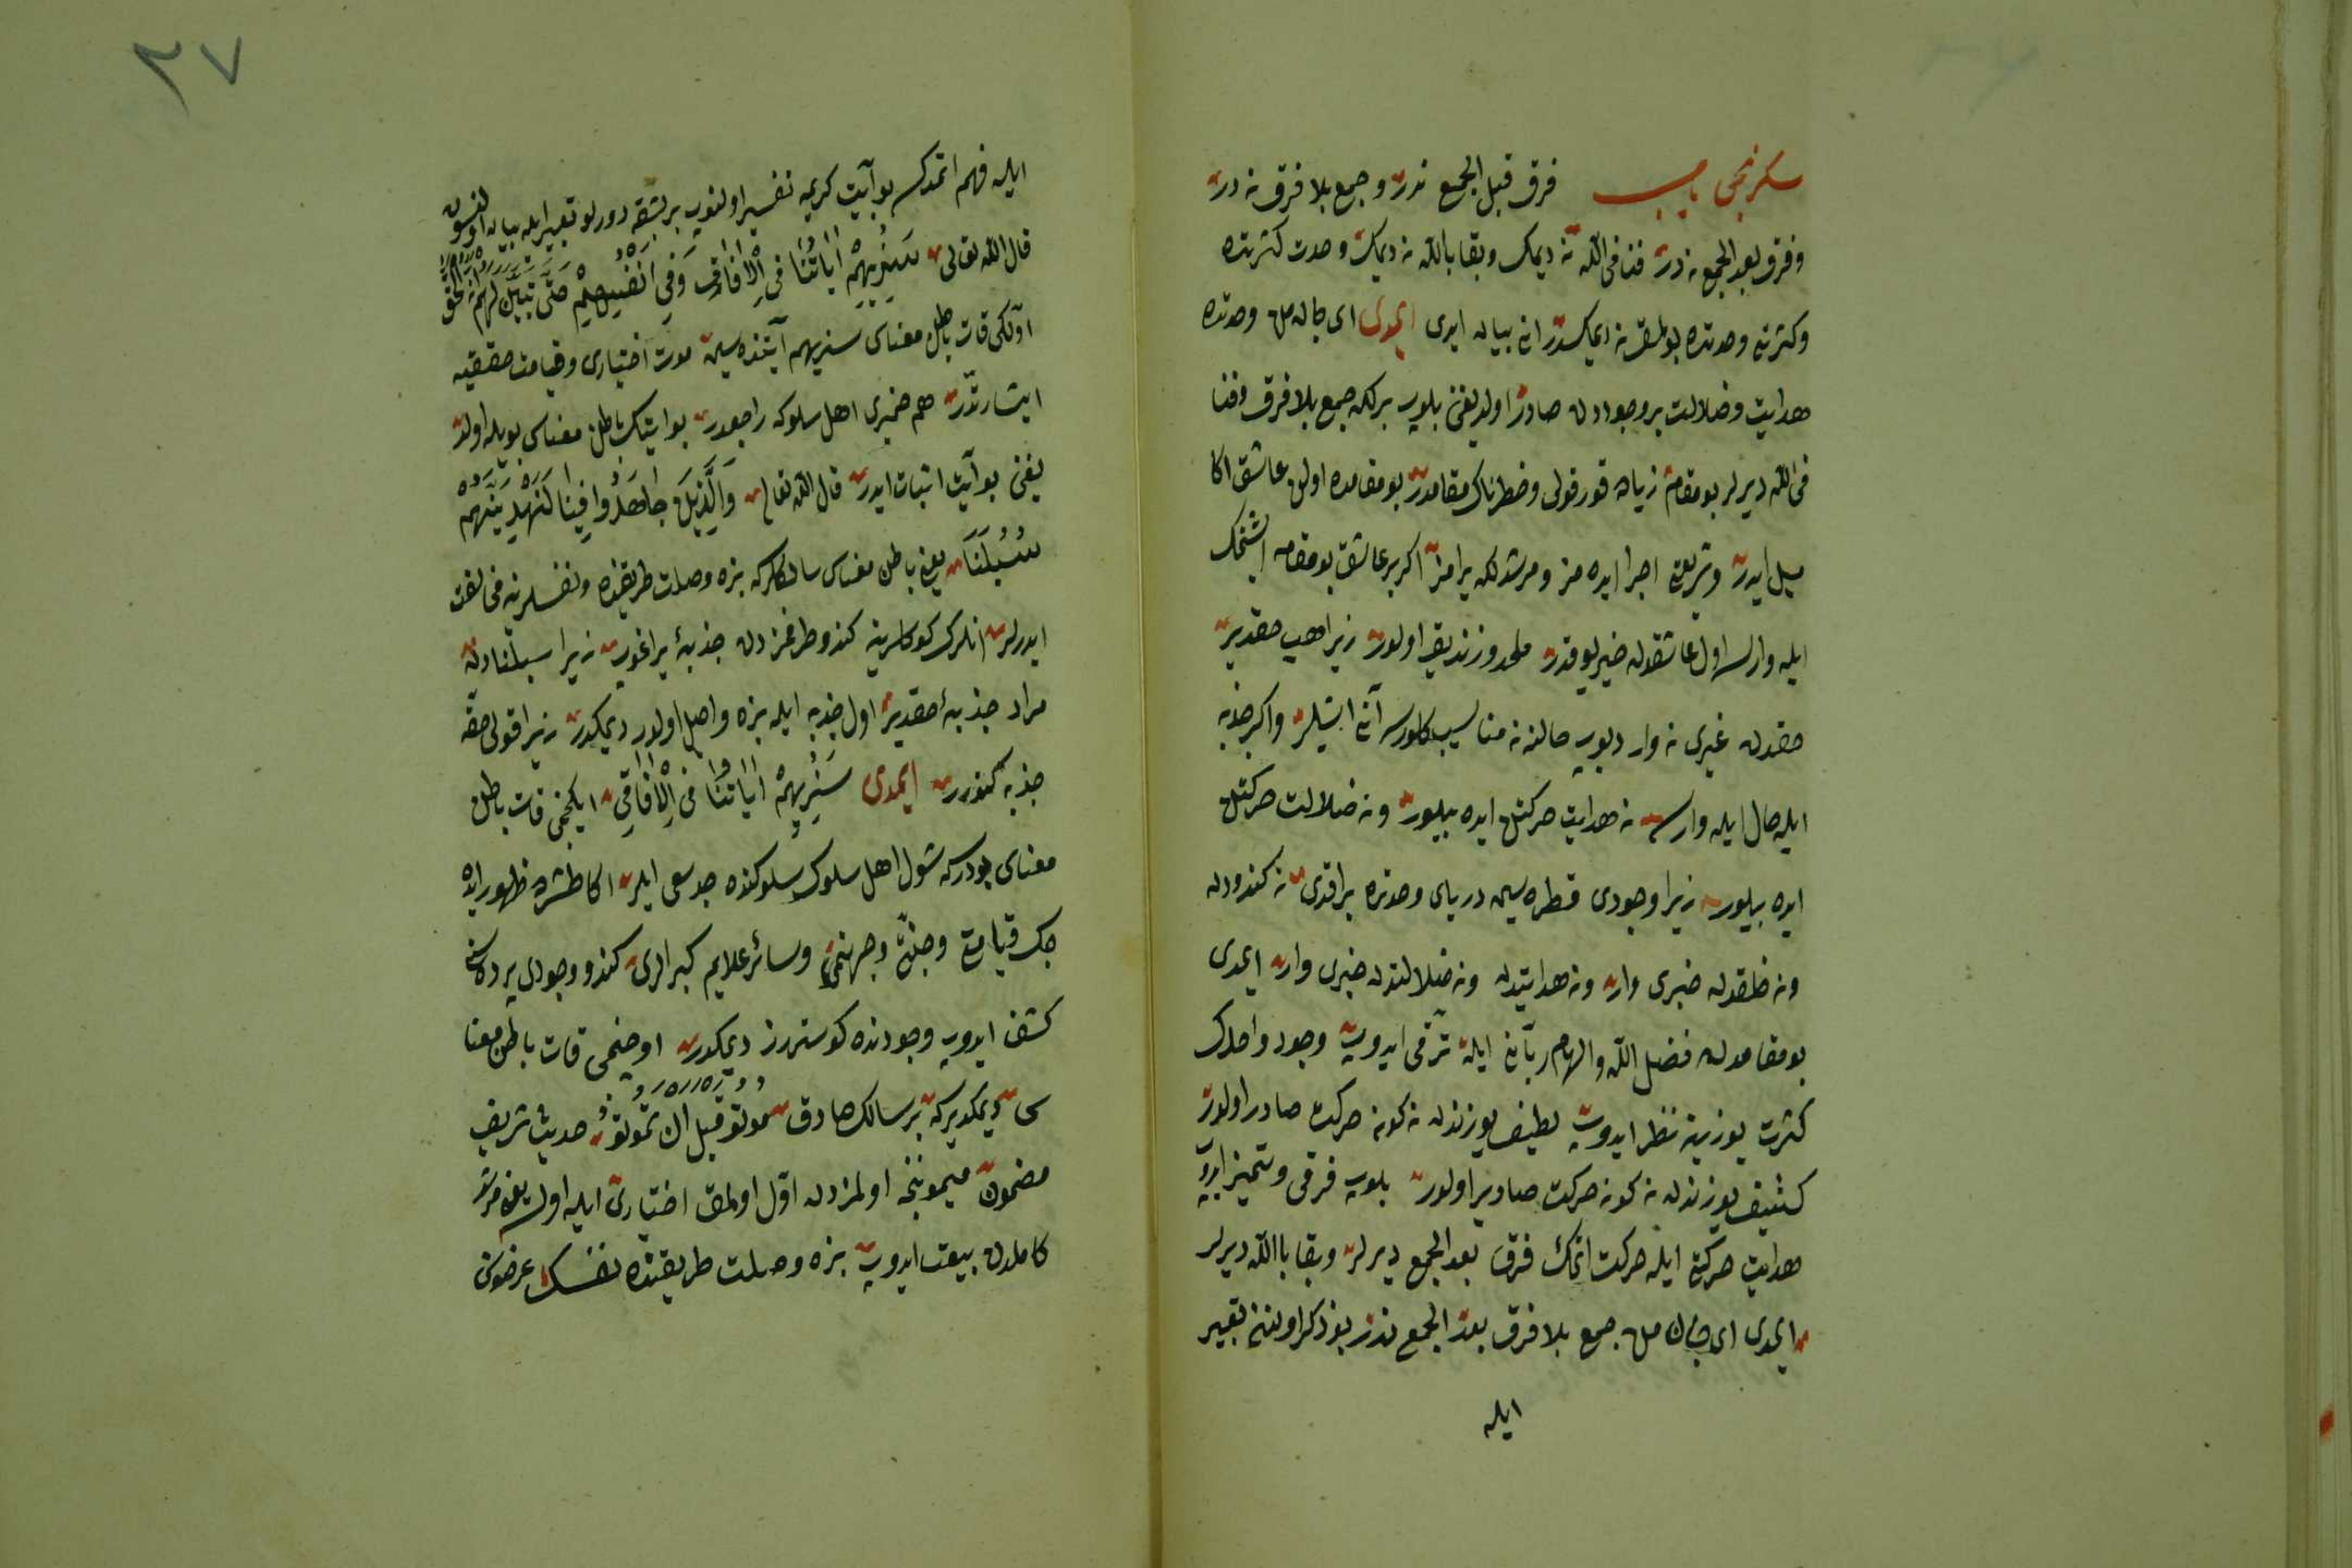 سكزنجى باب فرق قبل الجمع ندر و جمع بلا فرق نه در
و فرق بعد الجمع نه در فنا فى الله نه ديمك و بقا بالله نه ديمك وحدت كثرتده
و كثرت وحدتده بولمق نه ديمكدر انى بيان ايدر ايمدى اى جانه من وحدتده
هدايت و ضلالت بر وجوددن صادر اولديغنى بلوب بركله جمع بلا فرق و فنا
فى الله ديرلر بو مقام زياده قورقولى و خطرناك مقامدر بو مقامده اولن عاشق اكا
ميل ايدر و شريعتى اجرا ايده مز و مرشدلكه يرامز اكر بر عاشق بو مقامه ايشتمك
ايله وارسه اول عاشقدن خير يوقدر ملحد و زنديق اولور زيرا هپ حقدير
حقدن غيرى نه وار ديوب حالنه نه مناسب كلورسه آنى ايشلر و اكر جذبه
ايله حال ايله وارسه نه هدايت حركتن ايده بيلور و نه ضلالت حركتن
ايده بيلور زيرا وجودى قطره سين درياى وحدتده براقدى نه كندودن
و نه خلقدن خبرى وار و نه هدايتدن و نه ضلالتدن خبرى وار ايمدى
بو مقامدن فضل الله و الهام ربانى ايله ترقى ايدوب وجود واحدك
كثرت يوزينه نظر ايدوب لطيف يوزندن نه كونه حركت صادر اولور
كثيف يوزندن نه كونه حركت صادر اولور بلوب فرقى و تميز ايدوب
هدايت حركتى ايله حركت اتمك فرق بعد الجمع ديرلر و بقا باالله ديرلر
ايمدى اى جان من جمع بلا فرق بعد الجمع ندر بو ذكر اولنن تعبير
ايله
٢٧
ايله فهم اتمدكسه بو آيت كريمه تفسير اولنوب بر بشقه دورلو تعبير ايله بيان اولنسون
قال الله تعالى سَنُرِيهِمْ اٰيَاتِنَا فِى الْاٰفَاقِ وَفِى اَنْفُسِهِمْ حَتَّى يَتَبَيَّنَ لَهُمْ اَنَّهُ الْحَقُّ
اولكى قات باطن معناى سنريهم آيتنده سين موت اختيارى و قيامت حقيقيه
اشارتدر هم ضميرى اهل سلوكه راجعدر بو ايتك باطن معناسى بويله اولد
يغنى بو آيت اثبات ايدر قال الله تعالى وَالَّذِينَ جَاهَدُوا فِينَا لَنَهْدِيَنَّهُمْ
سُبُلَنَا يعنى باطن معناسى سالكلركه بزه وصلت طريقنده و نفسلرينه مخالفت
ايدرلر انلرك كوكللرينه كندو طرفمزدن جذبه براغورز زيرا سبلنادن
مراد جذبه حقدير اول جذبه ايله بزه واصل اولور ديمكدر زيرا قولى حقه
جذبه كتورر ايمدى سَنُرِيهِمْ اٰيَاتِنَا فِى الْاٰفَاقِ ايكنجى قات باطن
معناى بودركه شول اهل سلوك سلوكنده جد سعى ايلر اكا طشره ظهور ايده
جك قيامتى و جنتى و جهنمى و سائر علايم كبرالرى كندو وجودى پرده سنى
كشف ايدوب وجودنده كوستررز ديمكدر اوچنجى قات باطن معنا
سى ديمكديركه بر سالك صادق مُوتُوا قَبْلَ اَنْ تَمُوتُوا حديث شريف
مضمون ميمونجه اولمزدن اوّل اولمق اختيارى ايله اولسه يعنى مرشد
كاملدن بيعت ايدوب بزه وصلت طريقنده نفسك غرضون